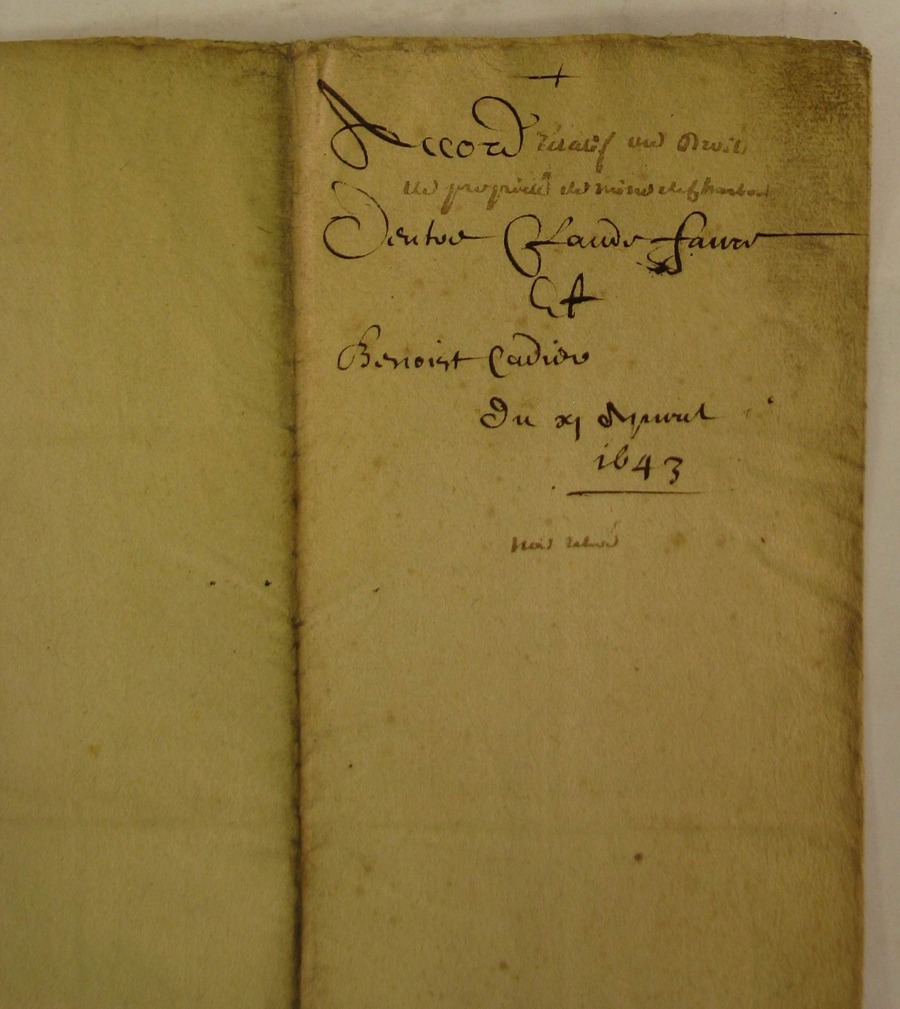 +
Accord relatif au Droit
de propriété de mine de Charbon
Dentre Claude faure
Et
Benoist Cadier
Du xj
1643